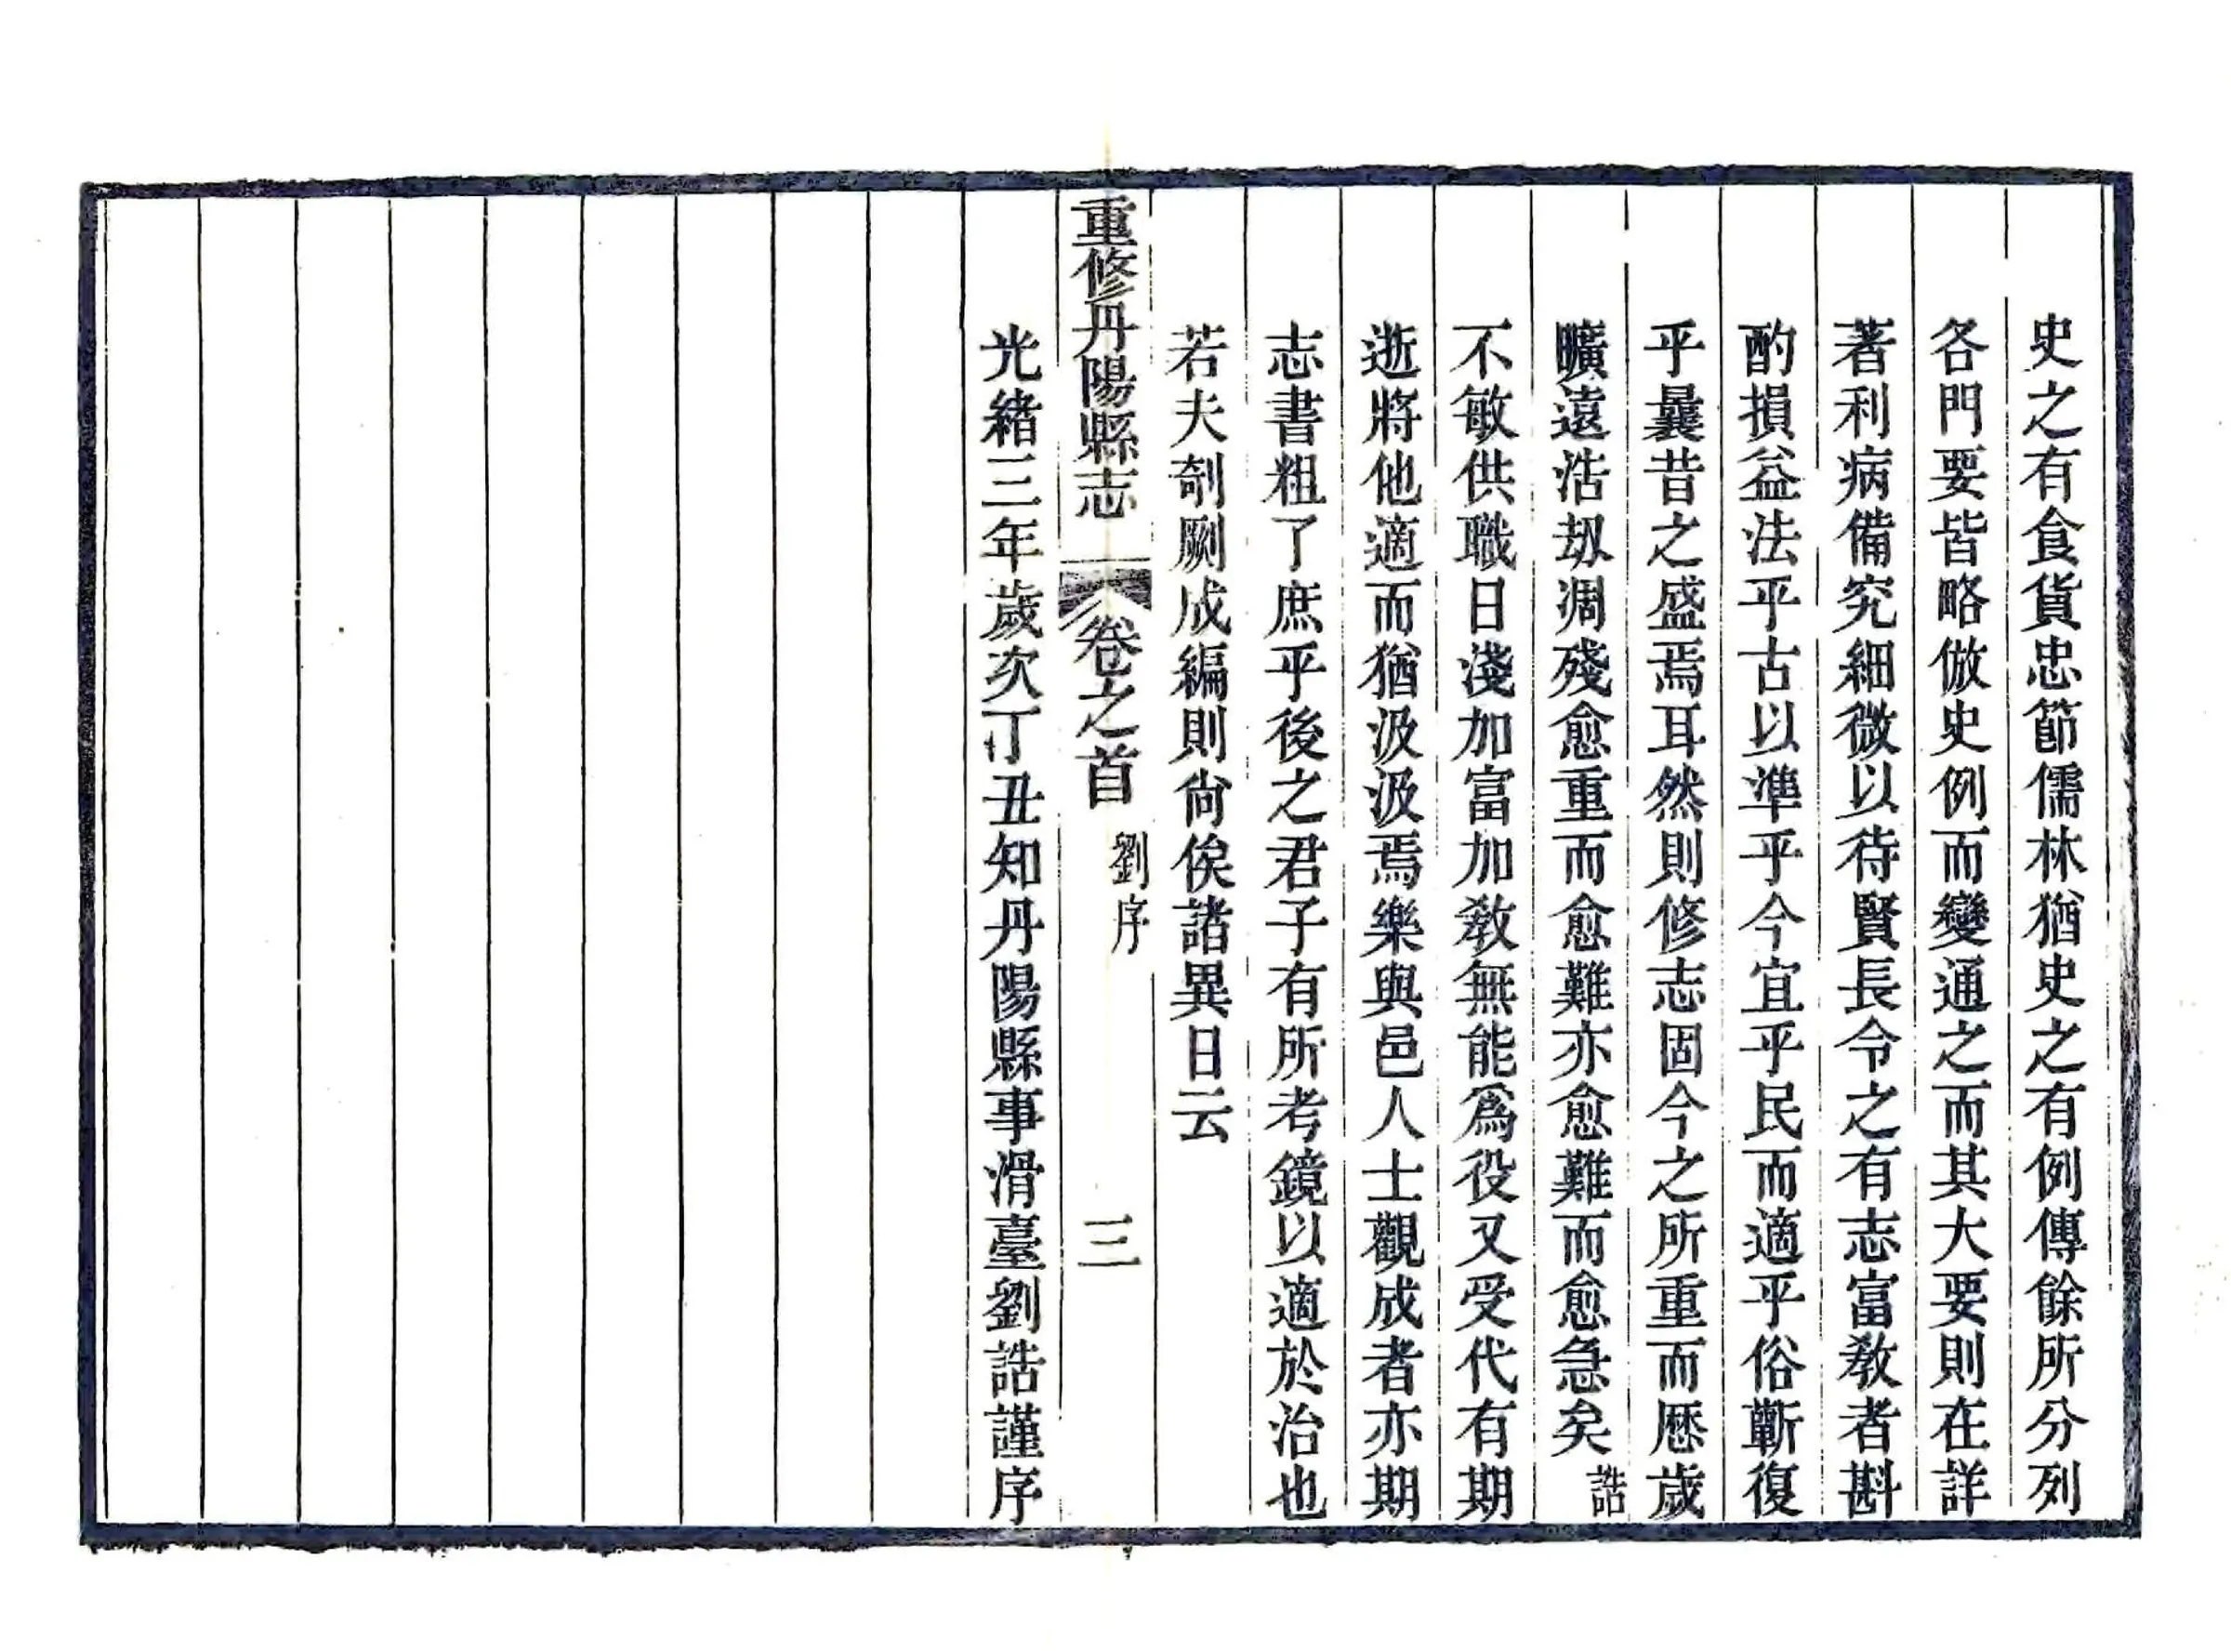 史之有食貨忠節儒林猶史之有例傳餘所分列
各門要皆略倣史例而變通之而其大要則在詳
著利病備究細微以待賢長令之有志富敎者斟
酌損益法乎古以準乎今宜乎民而適乎俗蘄復
乎曩昔之盛焉耳然則修志固今之所重而歷歲
曠遠浩刼凋殘愈重而愈難亦愈難而愈急矣誥
不敏供職日淺加富加敎無能爲役又受代有期
逝將他適而猶汲汲焉樂與邑人士觀成者亦期
志書粗了庶乎後之君子有所考鏡以適於治也
若夫剞劂成編則尙俟諸異日云
重修丹陽縣志 卷之首 劉序 三
光緒三年歲次丁丑知丹陽縣事滑臺劉誥謹序